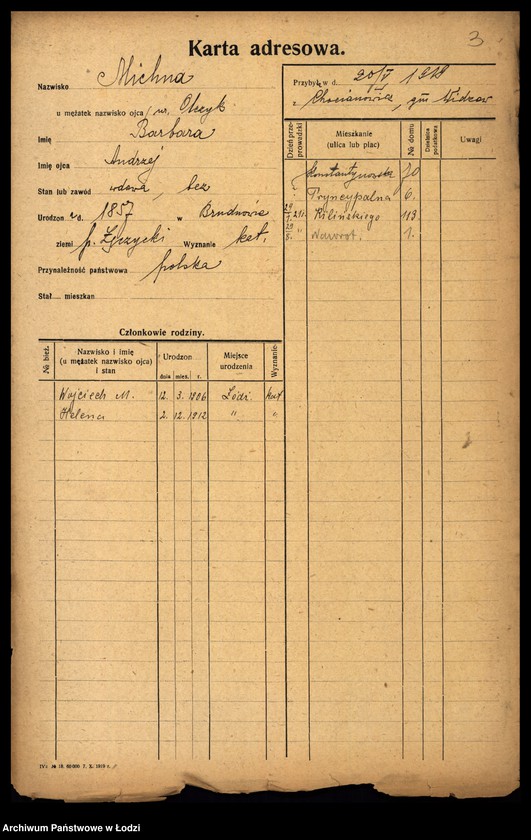 3
Karta adresowa.
Nazwisko Michna
u mężatek nazwisko ojca / ur. Olczyk
Imię Barbara
Imię ojca Andrzej
Stan lub zawód wdowa, bez
Urodzon w d. 1857 w Brudnowie
ziemi p. Łęczycki Wyznanie kat.
Przynależność państwowa polska
Stał.... mieszkan
Członkowie rodziny.
№ bież. Nazwisko i imię (u mężatek nazwisko ojca) i stan Urodzon dnia mies. r. Miejsce urodzenia Wyznanie
Wojciech M. 12. 3. 1906 Łódź. kat
Helena 2. 12. 1912 " "
Przybył w d. 20/V 1918
z Chocianowic, gm Widzew
Dzień przeprowadzki Mieszkanie (ulica lub plac) № domu Dzielnica podatkowa Uwagi
Konstantynowska 70
Pryncypalna 6.
Kilińskiego 113.
Nawrot. 1.
Archiwum Państwowe w Łodzi